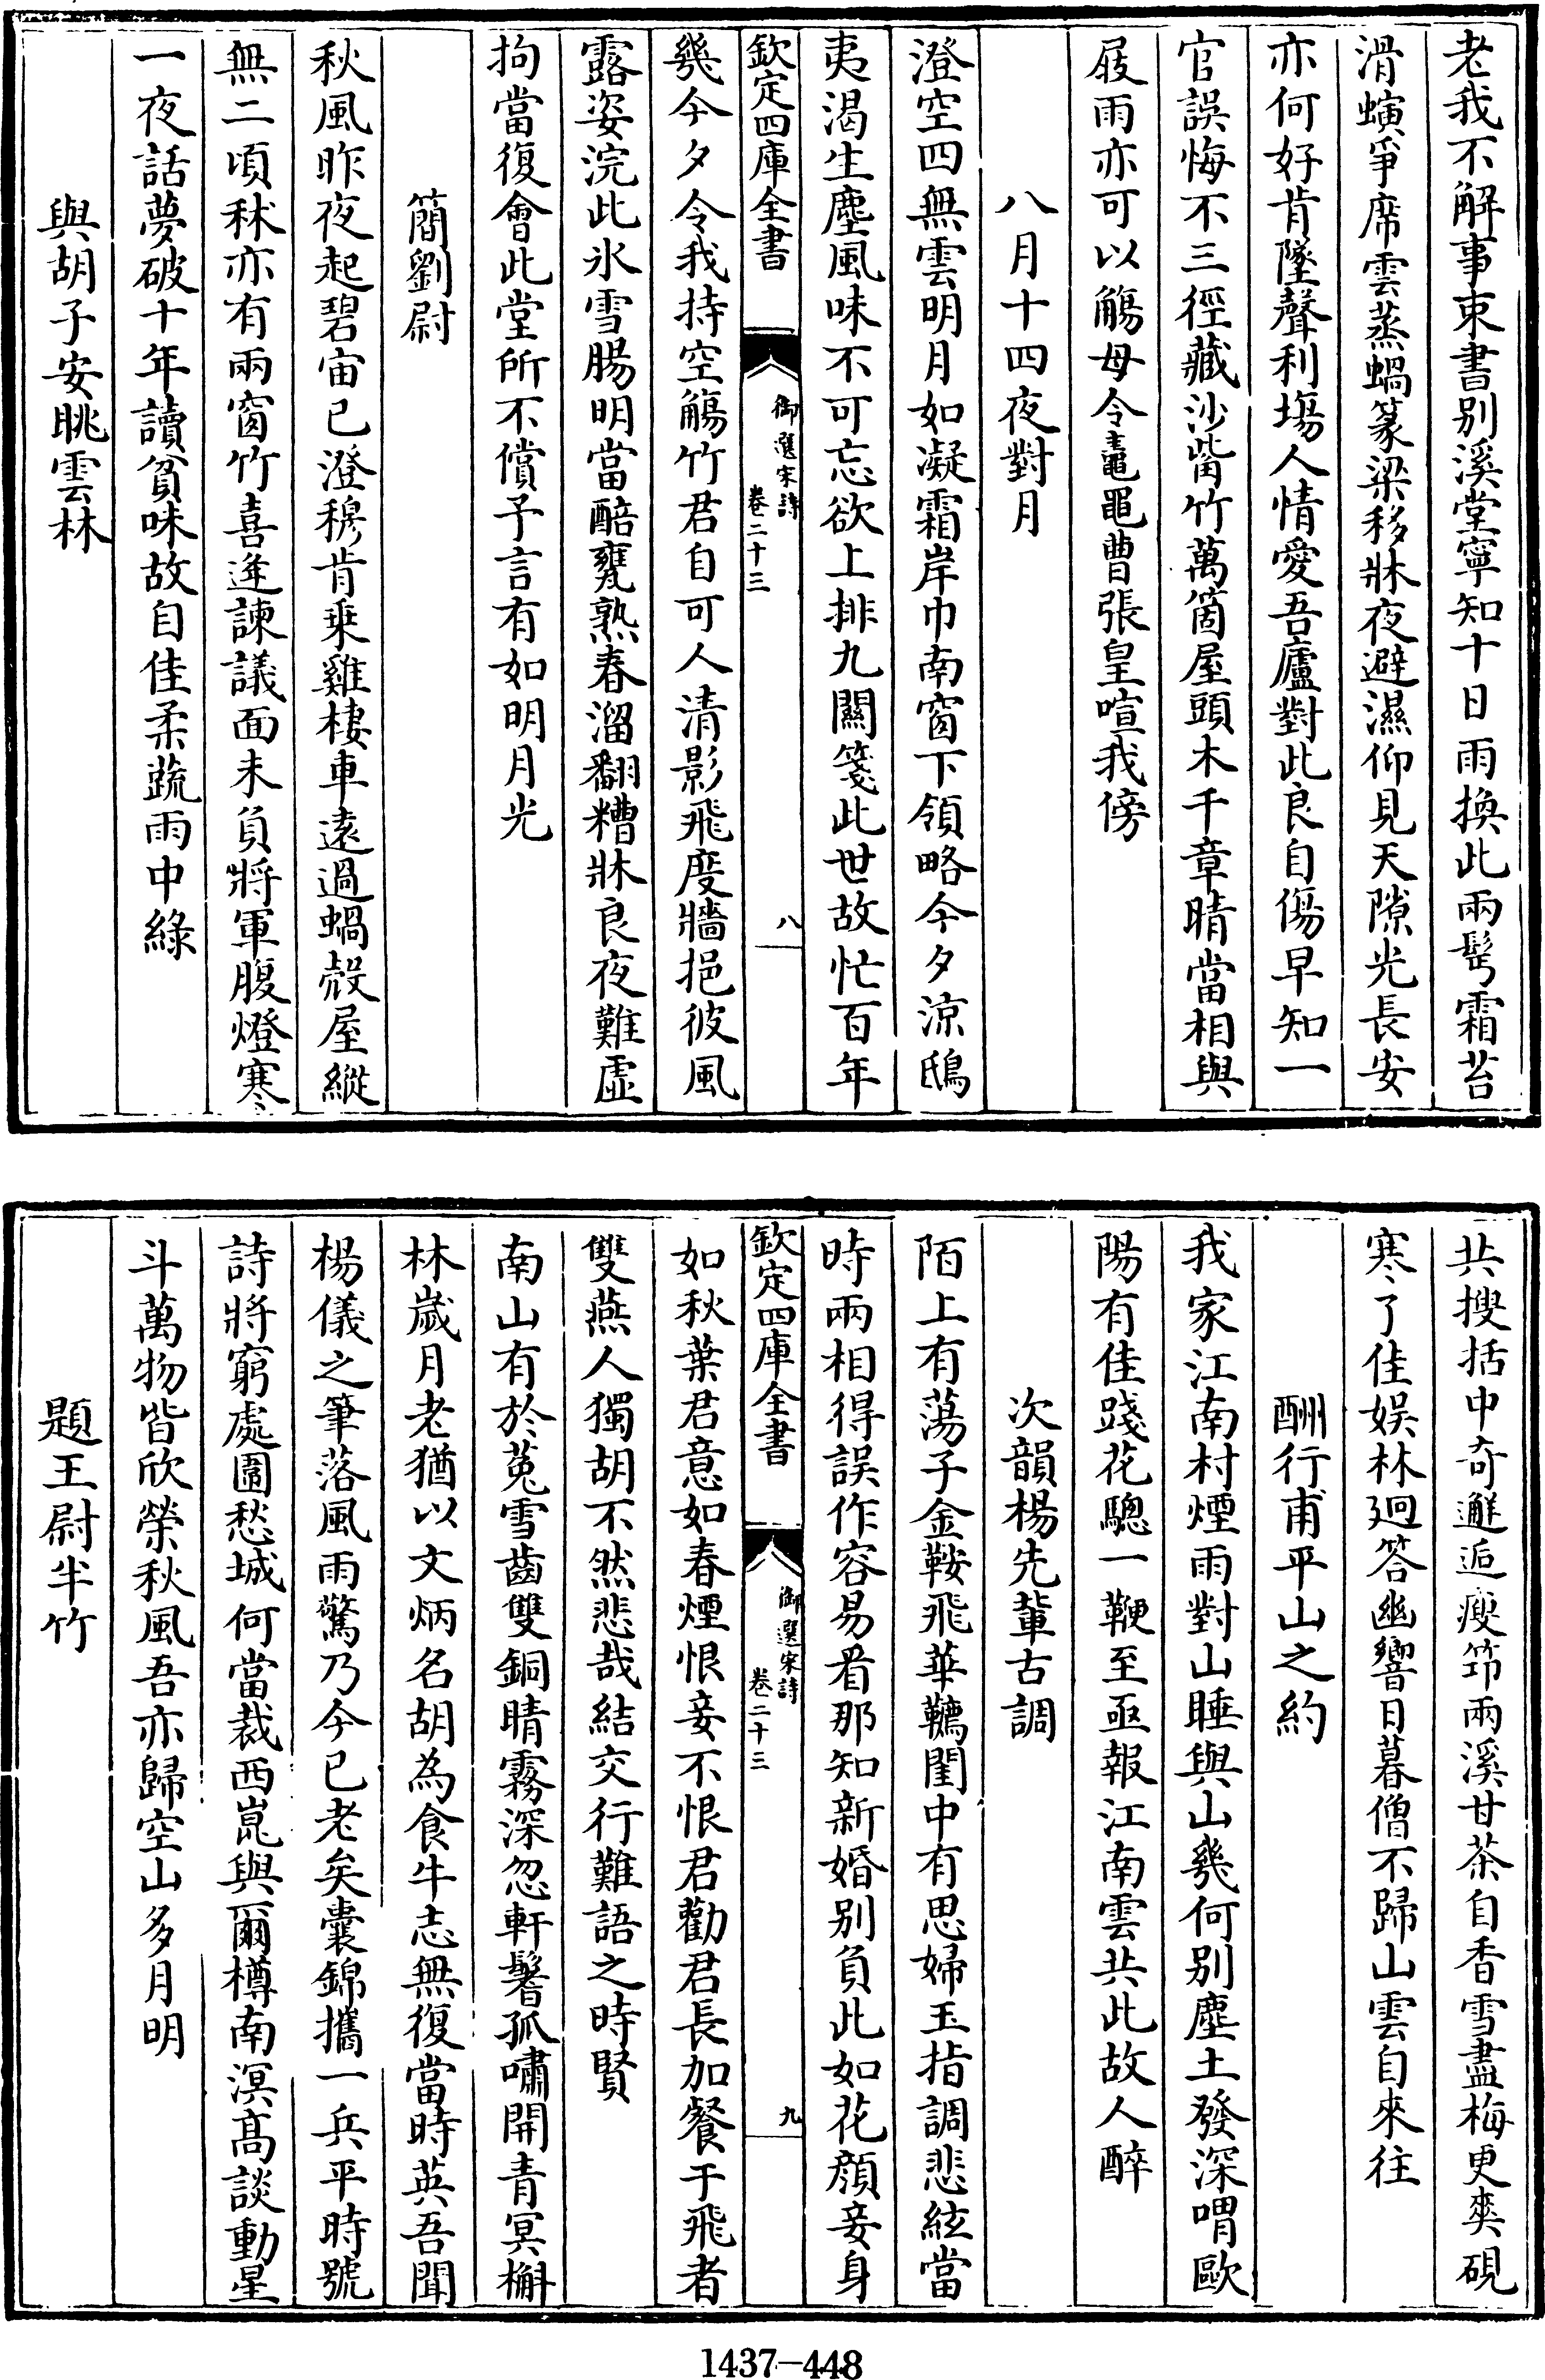 老我不解事束書别溪堂寧知十日雨換此兩髩霜苔
滑螾爭席雲蒸蝸篆梁移牀夜避濕仰見天隙光長安
亦何好肯墜聲利塲人情愛吾廬對此良自傷早知一
官誤悔不三徑藏沙觜竹萬箇屋頭木千章晴當相與
屐雨亦可以觴毋令鼃黽曹張皇喧我傍
八月十四夜對月
澄空四無雲明月如凝霜岸巾南窗下領略今夕涼鴟
夷渴生塵風味不可忘欲上排九闗箋此世故忙百年
欽定四庫全書
御選宋詩
卷二十三
八
幾今夕令我持空觴竹君自可人清影飛度牆挹彼風
露姿浣此氷雪腸明當醅甕熟春溜翻糟牀良夜難虛
拘當復會此堂所不償予言有如明月光
簡劉尉
秋風昨夜起碧宙已澄穆肯乘雞棲車遠過蝸殻屋縱
無二頃秫亦有兩窗竹喜逢諫議面未負將軍腹燈寒
一夜話夢破十年讀貧味故自佳柔蔬雨中綠
與胡子安眺雲林
共搜括中奇邂逅瘦笻兩溪甘茶自香雪盡梅更爽硯
寒了佳娱林廻答幽響日暮僧不歸山雲自來往
酬行甫平山之約
我家江南村煙雨對山睡與山幾何别塵土發深喟歐
陽有佳踐花驄一鞭至亟報江南雲共此故人醉
次韻楊先輩古調
陌上有蕩子金鞍飛華韉閨中有思婦玉指調悲絃當
時兩相得誤作容易看那知新婚别負此如花顔妾身
欽定四庫全書
御選宋詩
卷二十三
九
如秋葉君意如春煙恨妾不恨君勸君長加餐于飛者
雙燕人獨胡不然悲哉結交行難語之時賢
南山有於菟雪齒雙銅睛霧深忽軒鬐孤嘯開青冥槲
林歲月老猶以文炳名胡為食牛志無復當時英吾聞
楊儀之筆落風雨驚乃今已老矣囊錦攜一兵平時號
詩將窮處圍愁城何當裁西崑與爾樽南溟髙談動星
斗萬物皆欣榮秋風吾亦歸空山多月明
題王尉半竹
1437-448